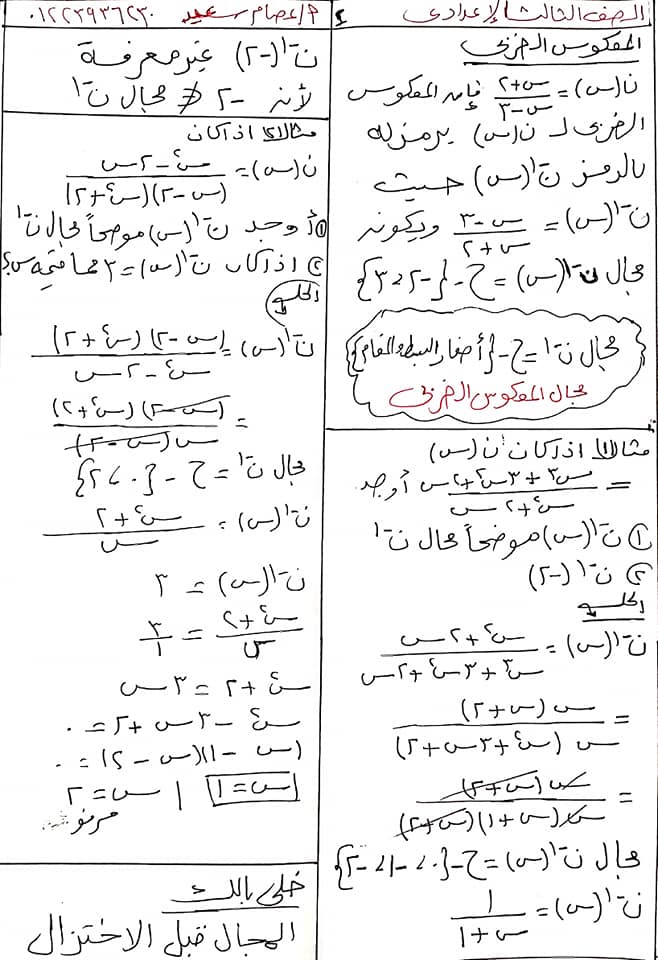 الصف الثالث الإعدادى
٢
أ/عصام سعيد ٠١٢٢٣٩٣٦٢٣٠
المعكوس الضربى
ن(س) = س+٢ / س-٣ فإنه المعكوس
الضربى لـ ن(س) يرمز له
بالرمز ن⁻¹(س) حيث
ن⁻¹(س) = س-٣ / س+٢ ويكون
مجال ن⁻¹(س) = ح - {-٢، ٣}
مجال ن⁻¹ = ح - {أصفار البسط والمقام}
مجال المعكوس الضربى
مثال(١) اذا كان ن(س)
= س³+٣س²+٢س / س²+٢س أوجد
① ن⁻¹(س) موضحاً مجال ن⁻¹
② ن⁻¹(-٢)
الحل
ن⁻¹(س) = س²+٢س / س³+٣س²+٢س
= س(س+٢) / س(س²+٣س+٢)
= س(س+٢) / س(س+١)(س+٢)
مجال ن⁻¹(س) = ح - {٠، -١، -٢}
ن⁻¹(س) = ١ / س+١
ن⁻¹(-٢) غير معرفة
لأنه -٢ ∉ مجال ن⁻¹
مثال(٢) اذا كان
ن(س) = س²-٢س / (س-٢)(س²+٢)
① أوجد ن⁻¹(س) موضحاً مجال ن⁻¹
② اذا كان ن⁻¹(س) = ٣ فما قيمة س؟
الحل
ن⁻¹(س) = (س-٢)(س²+٢) / س²-٢س
= (س-٢)(س²+٢) / س(س-٢)
مجال ن⁻¹ = ح - {٠، ٢}
ن⁻¹(س) = س²+٢ / س
ن⁻¹(س) = ٣
س²+٢ / س = ٣ / ١
س²+٢ = ٣س
س²-٣س+٢ = ٠
(س-١)(س-٢) = ٠
س=١ | س=٢
مرفوض
خلى بالك
المجال قبل الاختزال